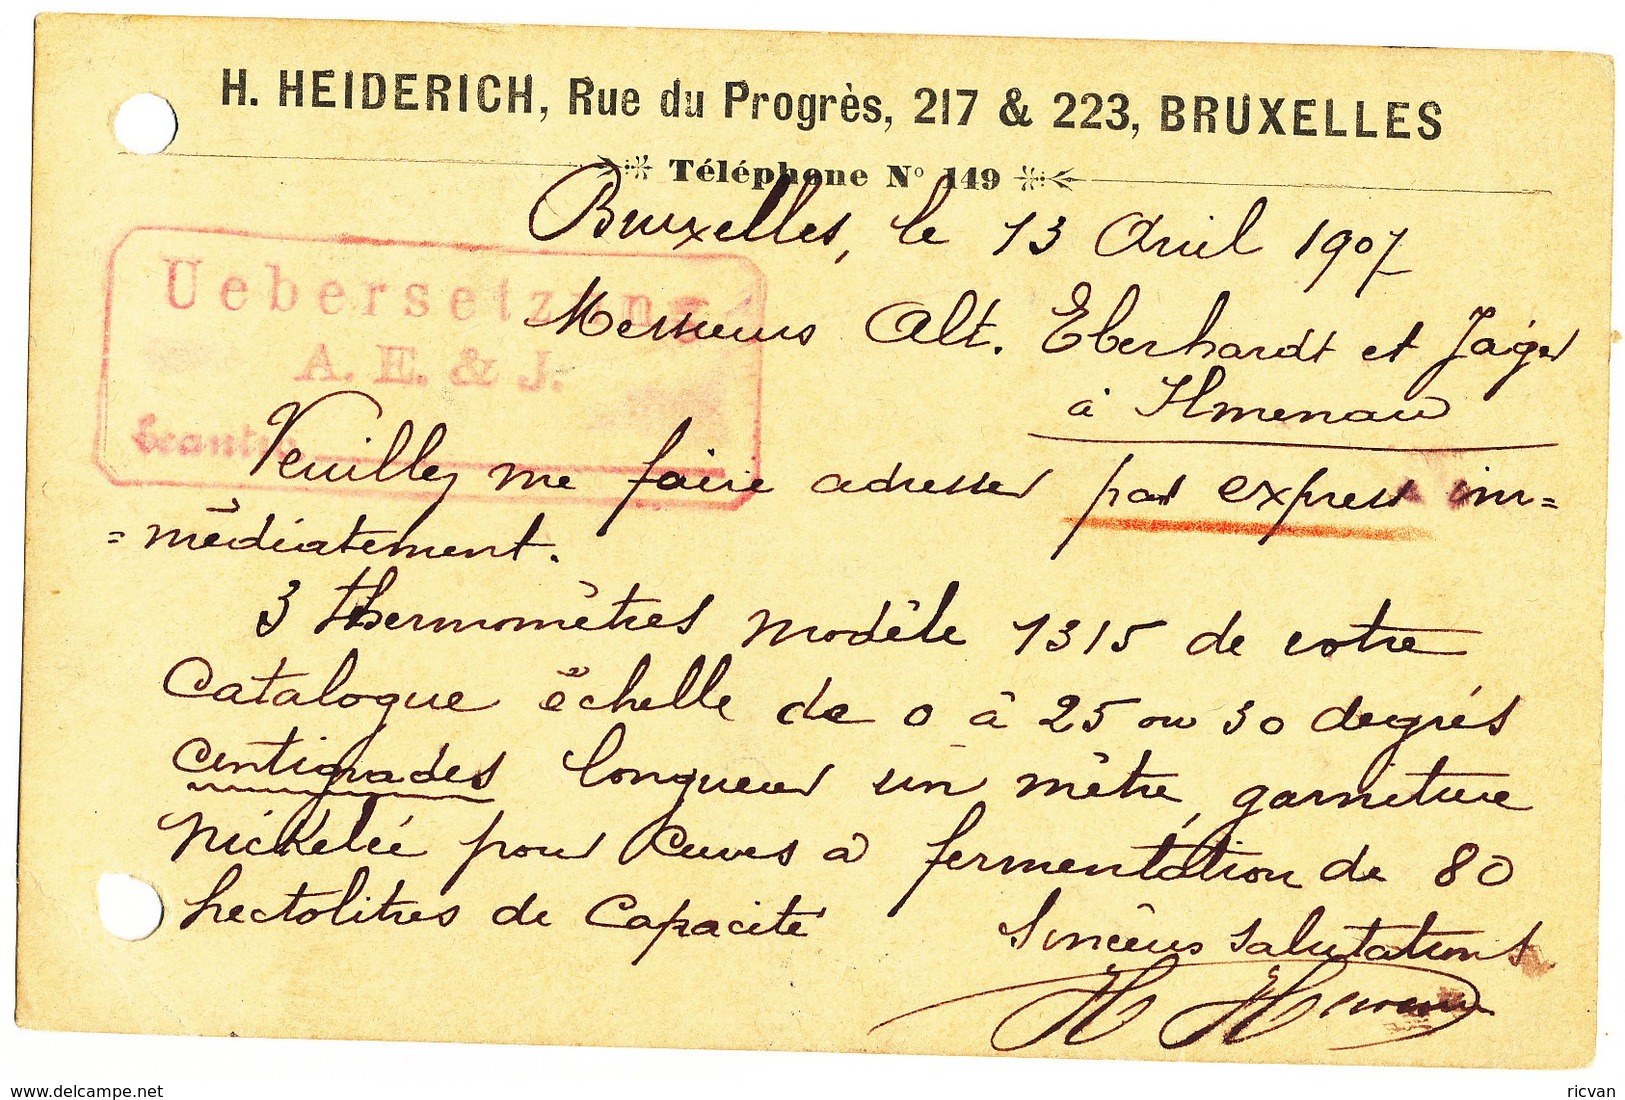 H. HEIDERICH, Rue du Progrès, 217 & 223, BRUXELLES
Téléphone N° 149
Bruxelles, le 13 Avril 1907
Uebersetzung
Messieurs Alt. Eberhardt et Jäger
A. E. & J.
à Ilmenau
Veuillez me faire adresser par express im=
=médiatement.
3 thermomètres modèle 1315 de votre
catalogue échelle de 0 à 25 ou 30 degrés
centigrades longueur un mètre, garniture
nickelée pour cuves à fermentation de 80
hectolitres de capacité
Sincères salutations
www.delcampe.net
ricvan